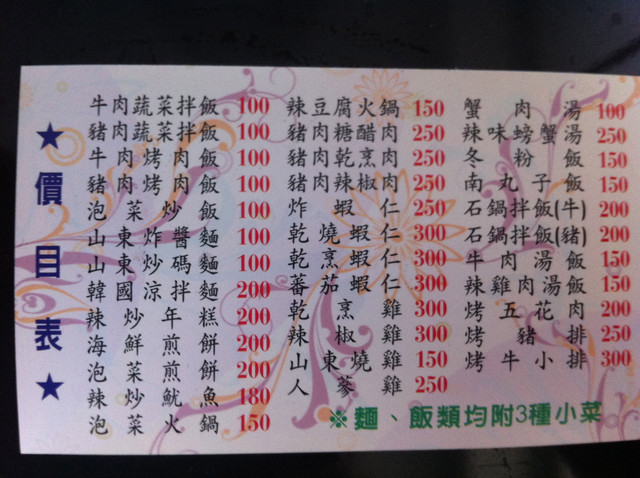 ★價目表★
牛肉蔬菜拌飯 100
豬肉蔬菜拌飯 100
牛肉烤肉飯 100
豬肉烤肉飯 100
泡菜炒飯 100
山東炸醬麵 100
山東炒碼麵 100
韓國涼拌麵 200
辣炒年糕 200
海鮮煎餅 200
泡菜煎餅 200
辣炒魷魚 180
泡菜火鍋 150
辣豆腐火鍋 150
豬肉糖醋肉 250
豬肉乾烹肉 250
豬肉辣椒肉 250
炸蝦仁 250
乾燒蝦仁 300
乾烹蝦仁 300
蕃茄蝦仁 300
乾烹雞 300
辣椒雞 300
山東燒雞 150
人蔘雞 250
蟹肉湯 100
辣味螃蟹湯 250
冬粉飯 150
南丸子飯 150
石鍋拌飯(牛) 200
石鍋拌飯(豬) 200
牛肉湯飯 150
辣雞肉湯飯 150
烤五花肉 200
烤豬排 250
烤牛小排 300
※麵、飯類均附3種小菜